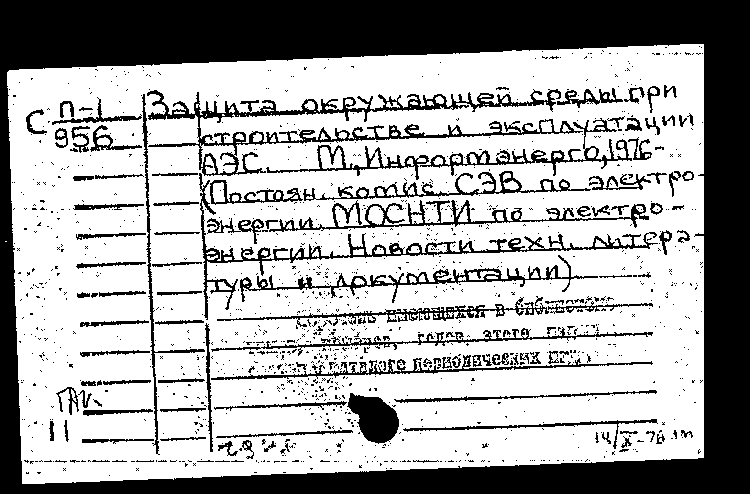 С П-1 Защита окружающей среды при
956 строительстве и эксплуатации
АЭС. М., Информэнерго, 1976-
(Постоян. комис. СЭВ по электро-
энергии. МОСНТИ по электро-
энергии. Новости техн. литера-
туры и документации)
имеющихся в библиотеке
номеров, годов этого
каталоге периодических
ГАК
11
14/X-76